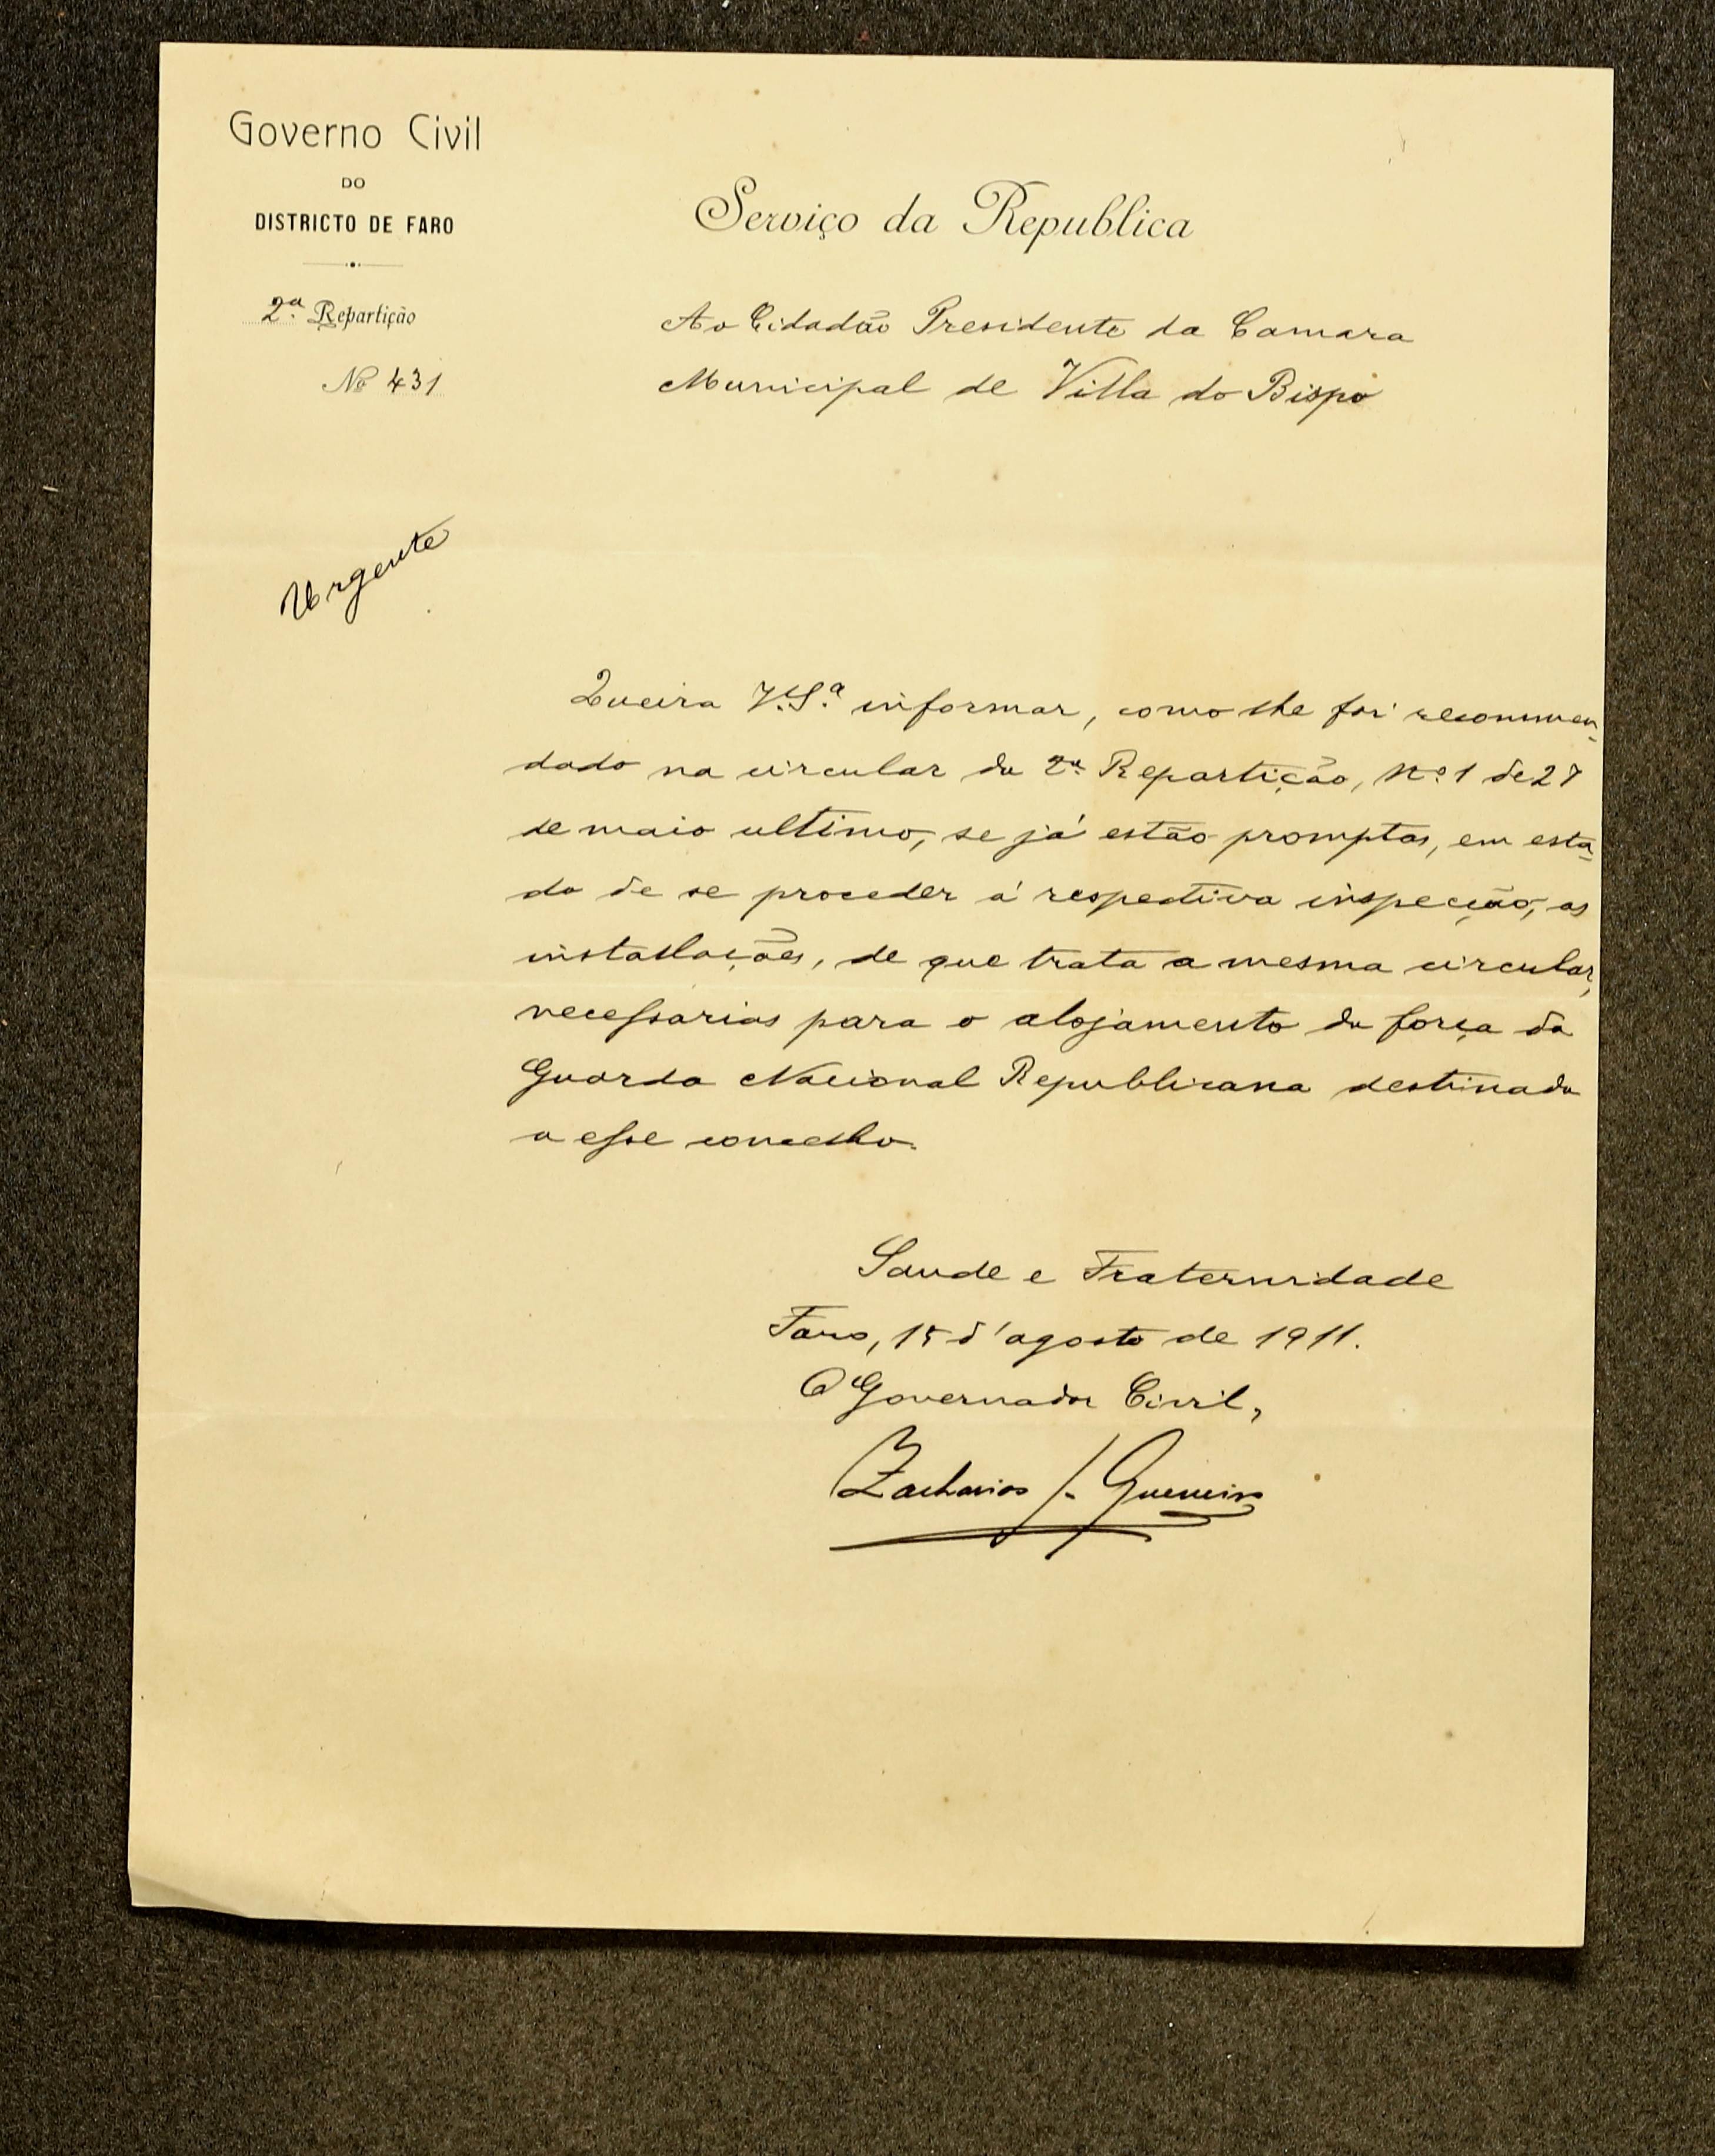 Governo Civil
DO
DISTRICTO DE FARO
2.ª Repartição
Nº 431
Serviço da Republica
Ao Cidadão Presidente da Camara
Municipal de Villa do Bispo
Urgente
Queira V. S.ª informar, como lhe foi recommen-
dado na circular da 2ª Repartição, Nº 1 de 27
de maio ultimo, se já estão promptas, em esta-
do de se proceder á respectiva inspecção, as
installações, de que trata a mesma circular,
necessarias para o alojamento da força da
Guarda Nacional Republicana destinada
a esse concelho.
Saude e Fraternidade
Faro, 15 d'agosto de 1911.
O Governador Civil,
Zacharias J. Guerreiro